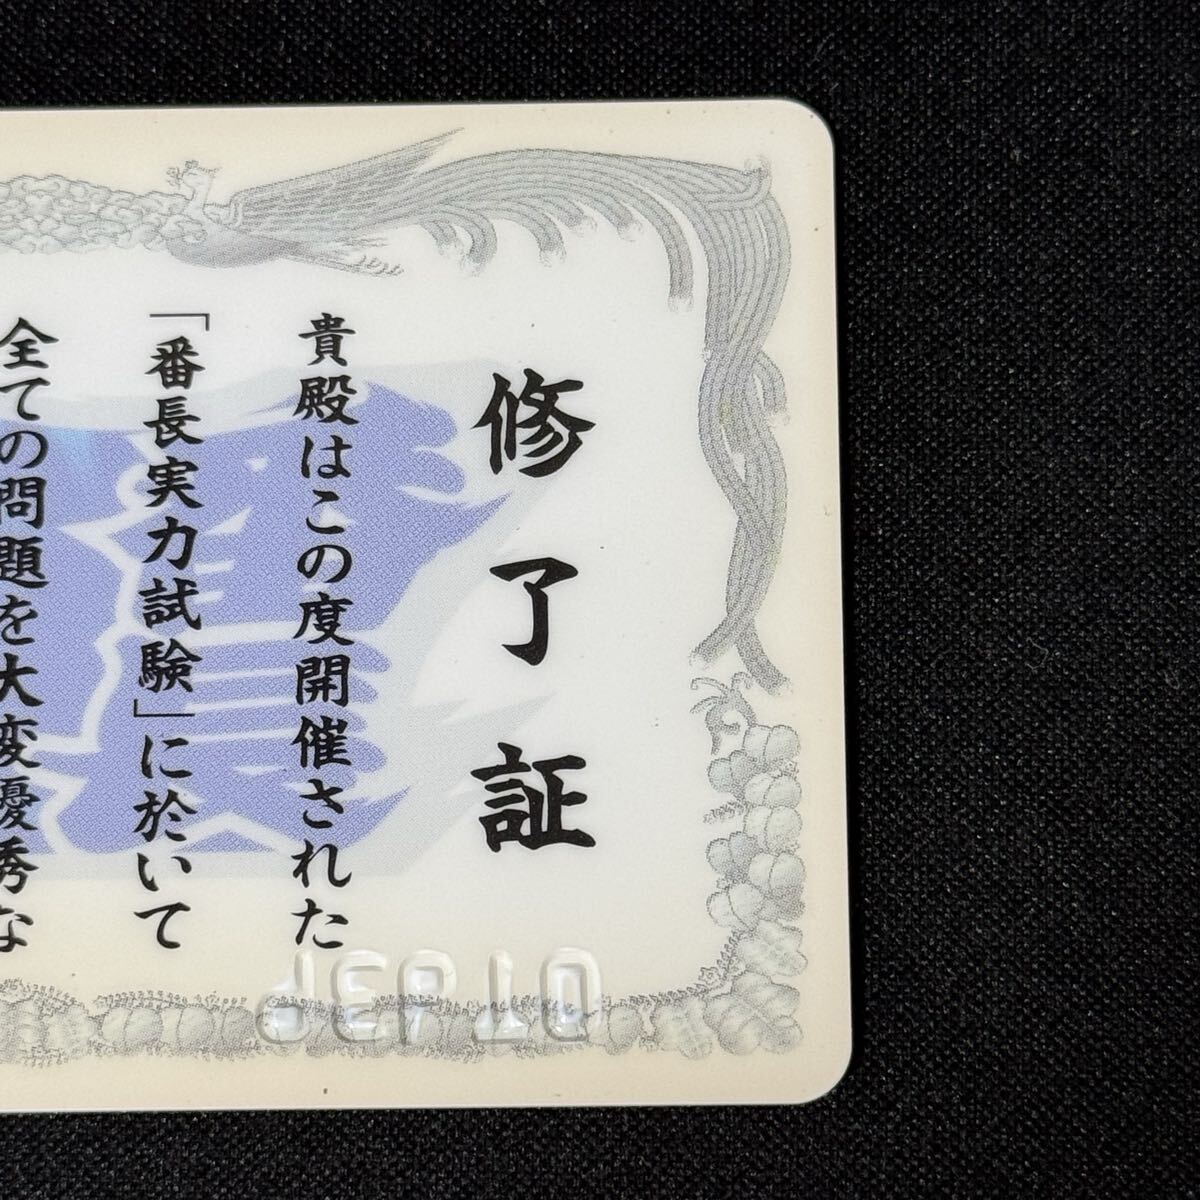 修了証
貴殿はこの度開催された
「番長実力試験」に於いて
全ての問題を大変優秀な